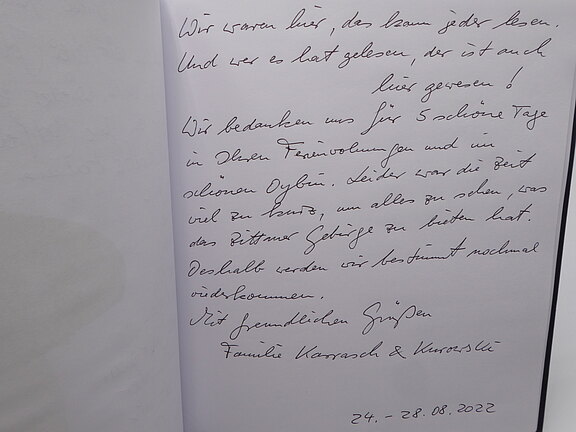 Wir waren hier, das kann jeder lesen.
Und wer es hat gelesen, der ist auch
hier gewesen!
Wir bedanken uns für 5 schöne Tage
in Ihren Ferienwohnungen und im
schönen Oybin. Leider war die Zeit
viel zu kurz, um alles zu sehen, was
das Zittauer Gebirge zu bieten hat.
Deshalb werden wir bestimmt nochmal
wiederkommen.
Mit freundlichen Grüßen
Familie Karrasch & Kurowski
24. - 28.08.2022